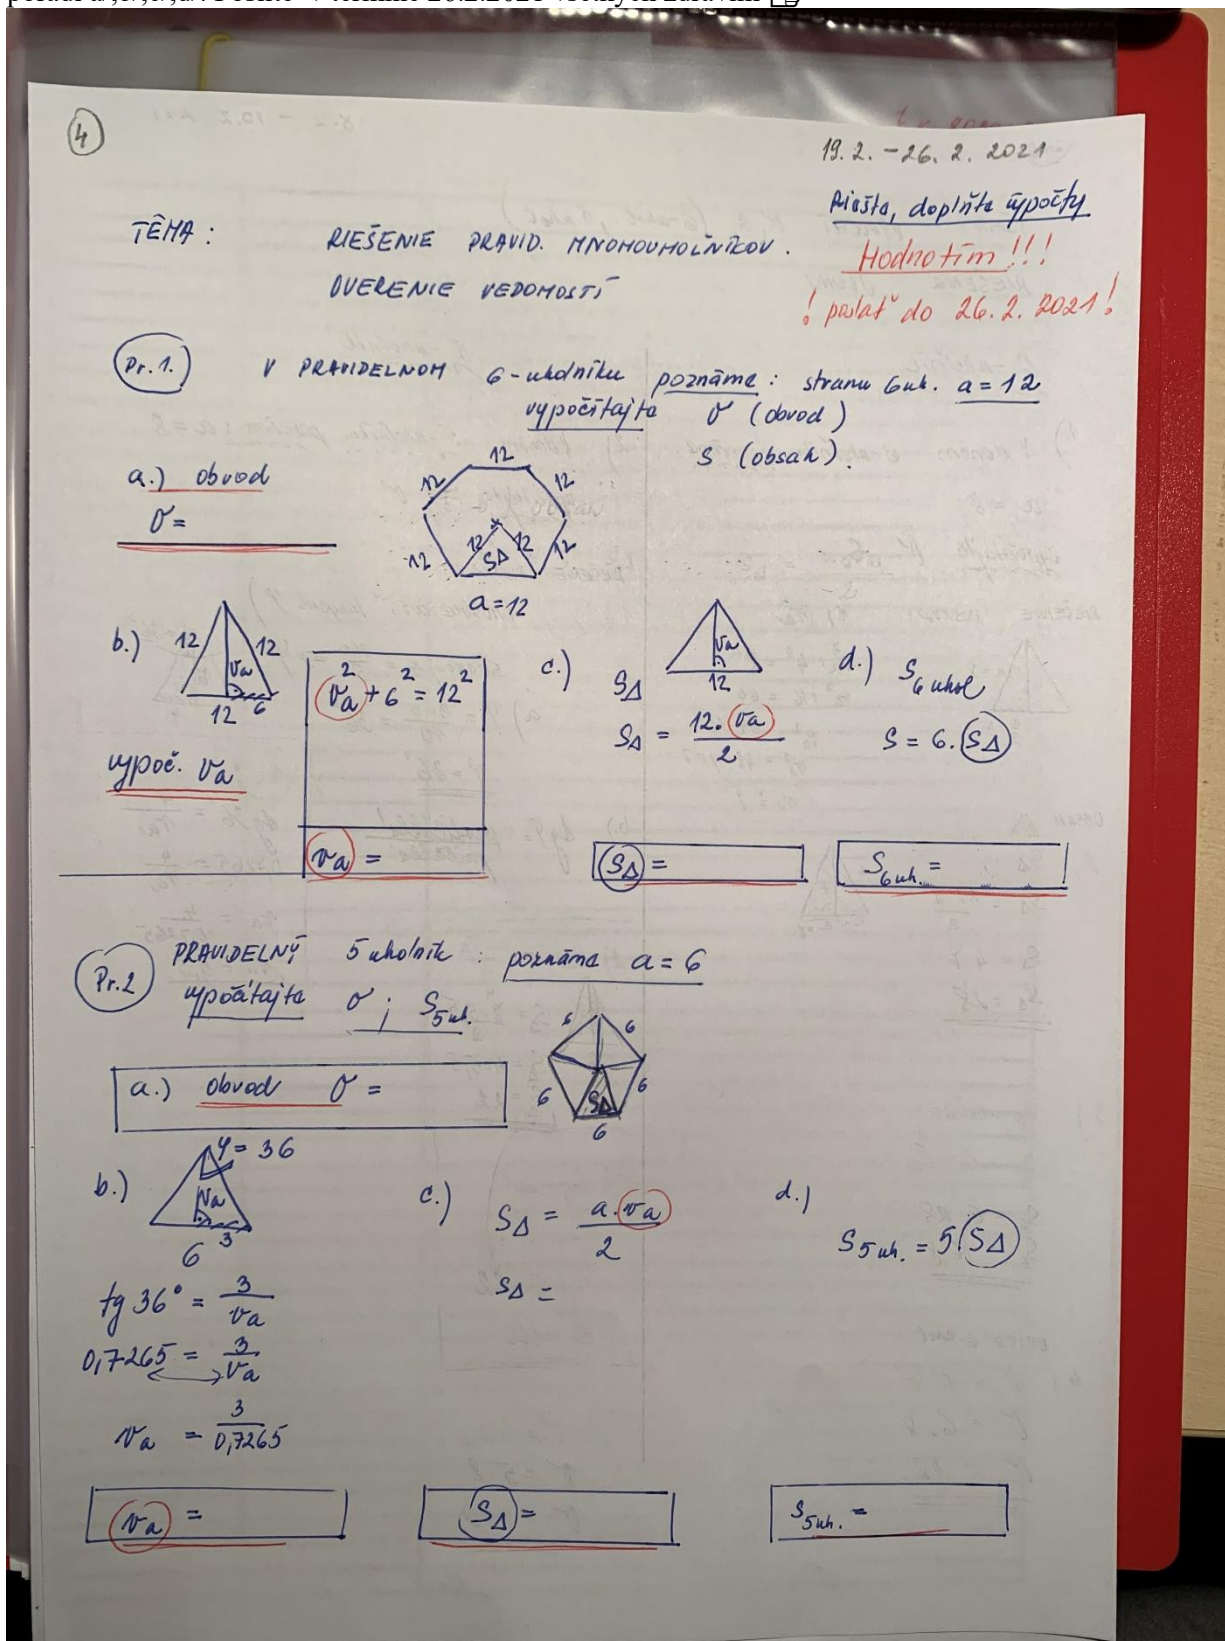 ④
19. 2. - 26. 2. 2021
Riešte, doplňte výpočty
TÉMA : RIEŠENIE PRAVID. MNOHOUHOLNÍKOV.
OVERENIE VEDOMOSTÍ
Hodnotím !!!
! poslať do 26. 2. 2021 !
Pr. 1. V PRAVIDELNOM 6-uholníku poznáme : stranu 6uh. a = 12
vypočítajte O (obvod)
S (obsah).
a.) obvod
O =
12
12 12
12 12
12 12
S∆
a = 12
b.) 12 12
va
12 6
vypoč. va
va² + 6² = 12²
va =
c.) S∆
va
12
S∆ = 12. va / 2
S∆ =
d.) S6uhol
S = 6. S∆
S6uh. =
Pr.2 PRAVIDELNÝ 5 uholník : poznáme a = 6
vypočítajte O ; S5uh.
a.) obvod O =
6 6
6 6
S∆
6
b.) φ = 36
va
6 3
tg 36° = 3 / va
0,7265 = 3 / va
va = 3 / 0,7265
va =
c.) S∆ = a. va / 2
S∆ =
S∆ =
d.)
S5uh. = 5. S∆
S5uh. =